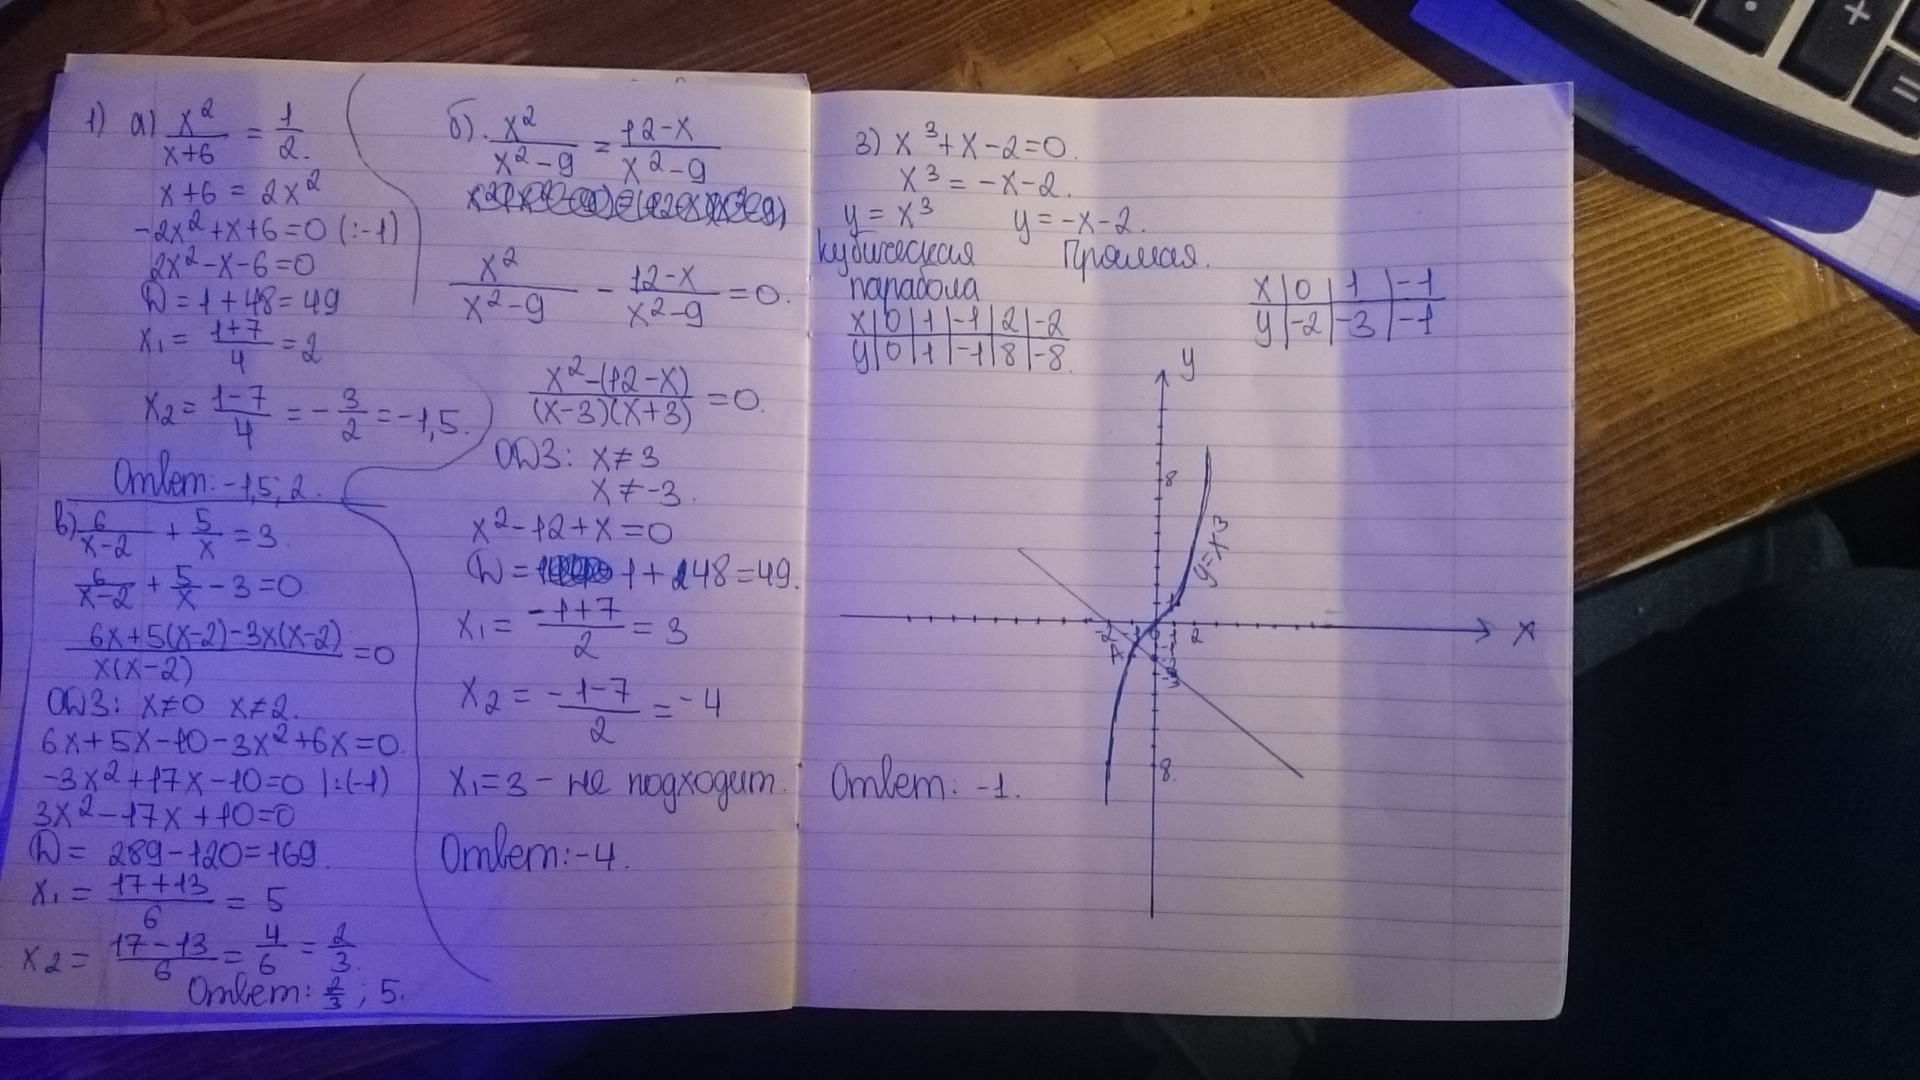 1) а) x²/(x+6) = 1/2.
x+6 = 2x²
-2x²+x+6=0 (:-1)
2x²-x-6=0
D=1+48=49
x₁ = (1+7)/4 = 2
x₂ = (1-7)/4 = -3/2 = -1,5.
Ответ: -1,5; 2.
в) 6/(x-2) + 5/x = 3.
6/(x-2) + 5/x - 3=0
(6x+5(x-2)-3x(x-2))/(x(x-2)) =0
ОДЗ: x≠0 x≠2.
6x+5x-10-3x²+6x=0.
-3x²+17x-10=0 |:(-1)
3x²-17x+10=0
D= 289-120=169.
x₁ = (17+13)/6 = 5
x₂ = (17-13)/6 = 4/6 = 2/3.
Ответ: 2/3; 5.
б). x²/(x²-9) = (12-x)/(x²-9)
x²/(x²-9) - (12-x)/(x²-9) =0.
(x²-(12-x))/((x-3)(x+3)) =0.
ОДЗ: x≠3
x≠-3.
x²-12+x=0
D= 1+48=49.
x₁ = (-1+7)/2 = 3
x₂ = (-1-7)/2 = -4
x₁=3 - не подходит.
Ответ: -4.
3) x³+x-2=0.
x³=-x-2.
y=x³ y=-x-2.
Кубическая Прямая.
парабола
x|0|1|-1|2|-2
y|0|1|-1|8|-8.
x|0|1|-1
y|-2|-3|-1
y
8
y=x³
1
-2 -1 0 1 2 x
A
-1
-2
-3
8.
Ответ: -1.